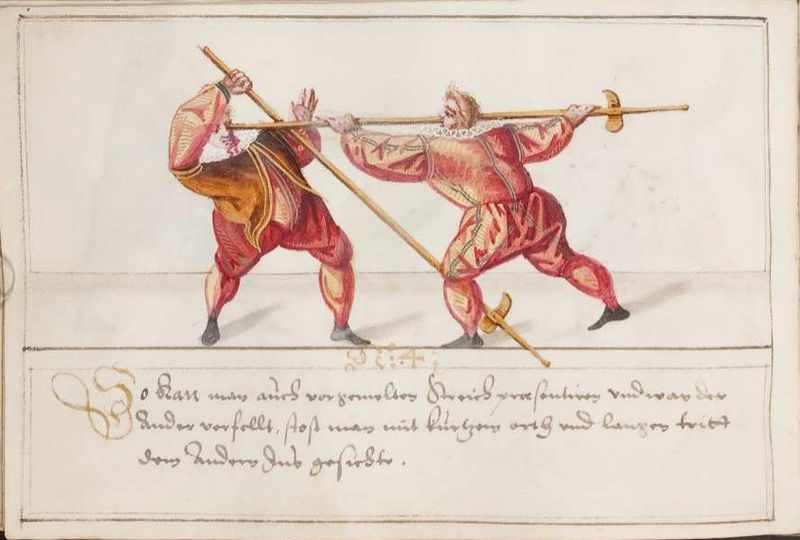 So kan man auch vorgemelten Streich presentiren vnd wan der
Ander verfellt, stost man mit kurtzem orth vnd langen tritt
dem Andern Ins gesichte.